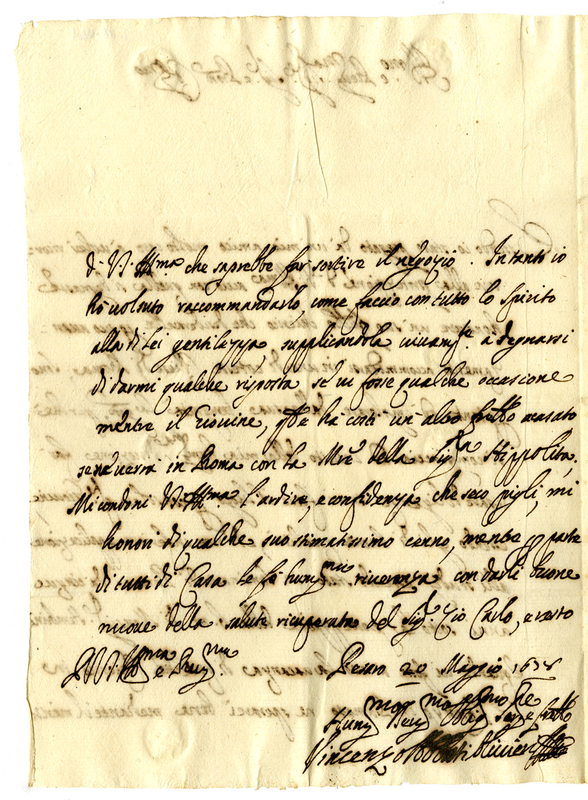 di V. Ill.ma che saprebbe far sortire il negozio. In tanto io
hò voluto raccommandarlo, come faccio con tutto lo spirito
alla di Lei gentilezza, supplicandola vivam.te a degnarsi
di darmi qualche risposta se vi fosse qualche occasione
mentre il Giovine, che ha costì un' altro frello acasato
se ne verrà in Roma con la M.re della Sig.ra Hippolita.
Mi condoni V. Ill.ma l'ardire, e confidenza che seco piglio, mi
honori di qualche suo stimatissimo cenno, mentre per parte
di tutti di Casa le fò hum.ma riverenza con darle buone
nuove della salute ricuperata del Sig.r Zio Carlo, e resto
D. V. Ill.ma e Rev.ma Pesaro 20 Maggio 1638
Hum.mo Dev.mo Oblig.mo Ser.re
Vincenzo Olivieri